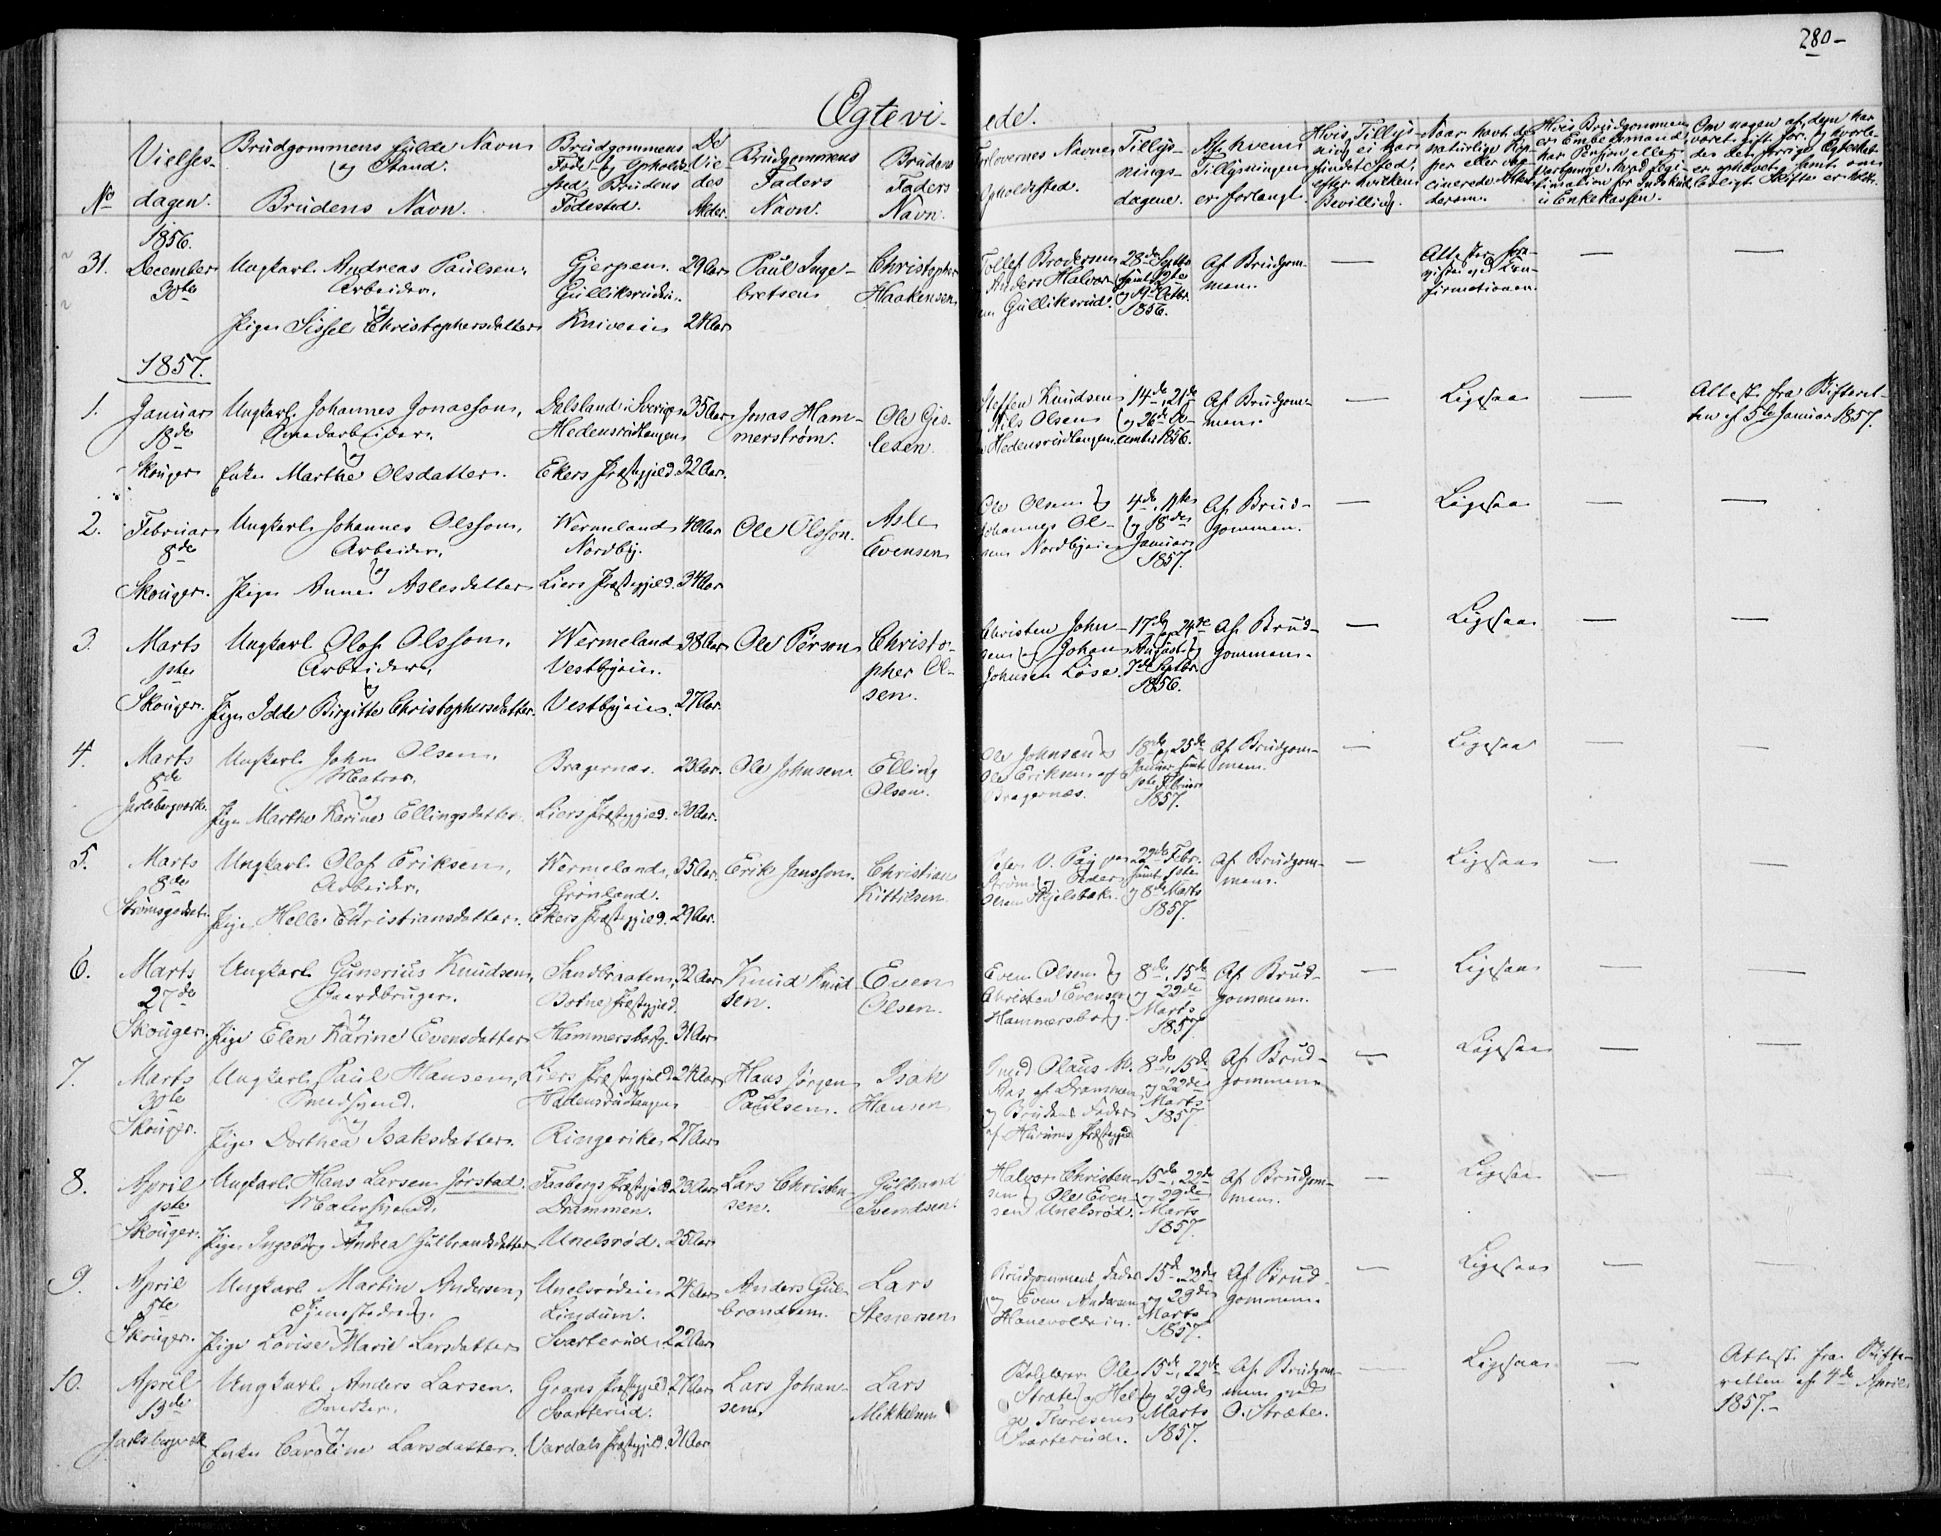 280-
Ægtevi-
ede.
No
Vielses-
dagen.
Brudgommens fulde Navn
og Stand.
Brudens Navn.
Brudgommens
Føde- og Opholds-
sted, Brudens
Fødested.
De
Vie-
des
Alder.
Brudgommens
Faders
Navn.
Brudens
Faders
Navn.
Forlovernes Navne
Opholdssted.
Tillys-
nings-
dagene.
Af hvem
Tillysningen
er forlangt.
Hvis Tillys-
ning ei har
fundet Sted,
efter hvilken
Bevilling.
1856.
31. December
30te
Ungkarl Andreas Paulsen,
Arbeider,
og
Pige Sissel Christophersdatter
Gjerpen.
Gulliksrudei.
Kniveein
29 Aar
24 Aar
Paul Inge-
bretsen
Christopher
Haakensen
Tollef Brodersen
Anders Halvor-
sen Gulliksrud.
28de Septbr
samt 12te
og 19de Octbr.
1856.
Af Brudgom-
men.
—
Attester fore-
viste ved Con-
firmationen.
—
—
1857.
1. Januar
18de
Skouger
Ungkarl Johannes Jonasson,
og
Enke Marthe Olsdatter.
Dalsland i Sverige
Hedensrudtangen
Ekers Præstegjeld.
35 Aar
32 Aar.
Jonas Ham-
merstrøm.
Ole Gis-
lesen.
Steffen Knudsen
Nils Olsen
Hedensrudtangen
14de, 21de
og 26de De-
cember 1856.
Af Brudgom-
men.
—
Ligesaa
—
Attest fra Skifteret-
ten af 5te Januar 1857.
2. Februar
8de
Skouger.
Ungkarl Johannes Olsson,
Arbeider,
og
Pige Anne Aslesdatter
Wermeland
Nordby.
Liers Præstegjeld.
40 Aar
34 Aar
Ole Olsson.
Asle
Evensen
Ole Olsen og
Johannes Ol-
sen Nordbyeie
4de, 11te
og 18de
Januar
1857.
Af Brud-
gommen.
—
Ligesaa
—
—
3. Marts
1ste
Skouger.
Ungkarl Olof Olsson,
Arbeider,
og
Pige Idde Birgitte Christophersdatter.
Wermeland
Vestbyeie.
Vestbyeie.
38 Aar
27 Aar.
Ole Person
Christo-
pher Ol-
sen.
Christen John-
sen og Johan
Johnsen Løse.
17de og 24de
August og
7de Septbr.
1856.
Af Brud-
gommen.
—
Ligesaa
—
—
4. Marts
8de
Jarlsbergværk.
Ungkarl John Olsen,
Matros,
og
Pige Marthe Karine Ellingsdatter.
Bragernæs.
Liers Præstegjeld.
23 Aar.
30 Aar.
Ole Johnsen
Elling
Olsen.
Ole Johnsen og
Ole Eriksen af
Bragernæs.
18de og 25de
Januar samt
1ste Februar
1857.
Af Brudgom-
men.
—
Ligesaa
—
—
5. Marts
8de
Strømsgodset.
Ungkarl Olof Eriksen,
Arbeider,
og
Pige Helle Christiansdatter.
Wermeland,
Grønland.
Ekers Præstegjeld.
35 Aar.
29 Aar.
Erik Jansson.
Christian
Kittilsen.
22de Febr.
samt 1ste
og 8de Marts
1857.
Af Brudgom-
men.
—
Ligesaa
—
—
6. Marts
27de
Skouger.
Ungkarl Gunerius Knudsen,
Gaardbruger.
og
Pige Elen Karine Evensdatter
Sandbraaten,
Botne Præstegjeld.
Hammersborg.
32 Aar
31 Aar
Knud Knud-
sen.
Even
Olsen.
Even Olsen og
Christen Evensen
Hammersborg.
8de, 15de
og 22de
Marts
1857
Af Brud-
gommen.
—
Ligesaa
—
—
7. Marts
30te
Skouger.
Ungkarl Paul Hansen,
Smedsvend.
og
Pige Dorthea Isaksdatter.
Liers Præstegjeld
Hedensrudtangen
Ringerike
24 Aar
27 Aar
Hans Jørgen
Paulsen.
Isak
Hansen
Smed Olaus M.
Aas af Drammen
og Brudens Fader
af Hurums Præstegjeld
8de, 15de
og 22de
Marts
1857.
Af Brud-
gommen
—
Ligesaa
—
—
8. April
1ste
Skouger.
Ungkarl Hans Larsen Jørstad.
Malersvend,
og
Pige Ingeborg Andrea Gulbrandsdatter
Faabergs Præstegjeld
Drammen.
Unelsrød.
23 Aar
25 Aar
Lars Christen-
sen.
Gulbrand
Svendsen.
Halvor Christen-
sen og Ole Even-
sen Unelsrød.
15de, 22de
og 29de
Marts
1857.
Af Brudgom-
men.
—
Ligesaa
—
9. April
5te
Skouger.
Ungkarl Martin Andersen,
og
Pige Lovise Marie Larsdatter
Unelsrødeie
Lindum.
Svarterud
24 Aar
22 Aar
Anders Gul-
brandsen.
Lars
Stenersen
Brudgommens Fader
og Even Andersen
Hanevoldeie.
15de, 22de
og 29de
Marts
1857.
Af Brud-
gommen.
—
Ligesaa
—
—
10. April
13de
Jarlsbergværk
Ungkarl Anders Larsen.
Snedker,
og
Enke Caroline Larsdatter.
Grans Præstegjeld
Svarterud.
Vardals Præstegjeld.
27 Aar
31 Aar
Lars Johan-
sen.
Lars
Mikkelsen
Ole
Stræte og Hel-
ge Thoresen
Svarterud.
15de, 22de
og 29de
Marts
1857.
Af Brudgom-
men ved
O. Stræte.
—
Ligesaa
—
Attest fra Skifte-
retten af 4de April
1857.-